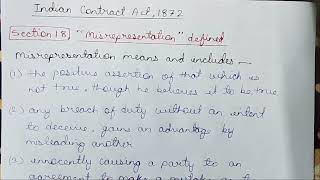 Indian Contract Act, 1872
Section 18 "Misrepresentation" defined
misrepresentation means and includes —
(1) the positive assertion of that which is
not true, though he believes it to be true
(2) any breach of duty without an intent
to deceive, gains an advantage by
misleading another
(3) innocently causing a party to an
agreement to make a mistake